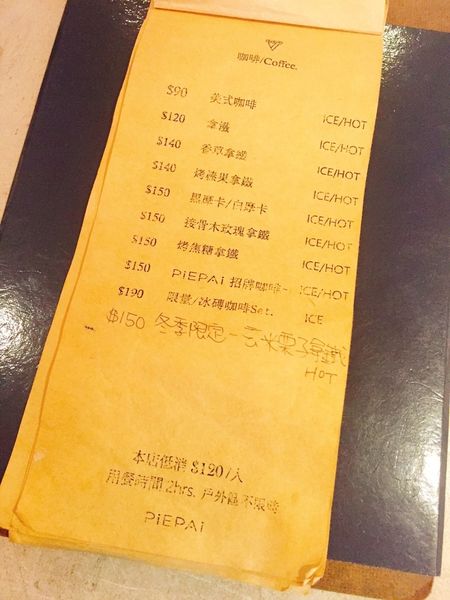 咖啡/Coffee.
$90 美式咖啡 ICE/HOT
$120 拿鐵 ICE/HOT
$140 香草拿鐵 ICE/HOT
$140 烤榛果拿鐵 ICE/HOT
$150 黑摩卡/白摩卡 ICE/HOT
$150 接骨木玫瑰拿鐵 ICE/HOT
$150 烤焦糖拿鐵 ICE/HOT
$150 PiEPAi 招牌咖啡- ICE/HOT
$190 限量/冰磚咖啡Set. ICE
$150 冬季限定-玄米栗子拿鐵
HOT
本店低消 $120/人
用餐時間 2hrs. 戶外區不限時
PiEPAi